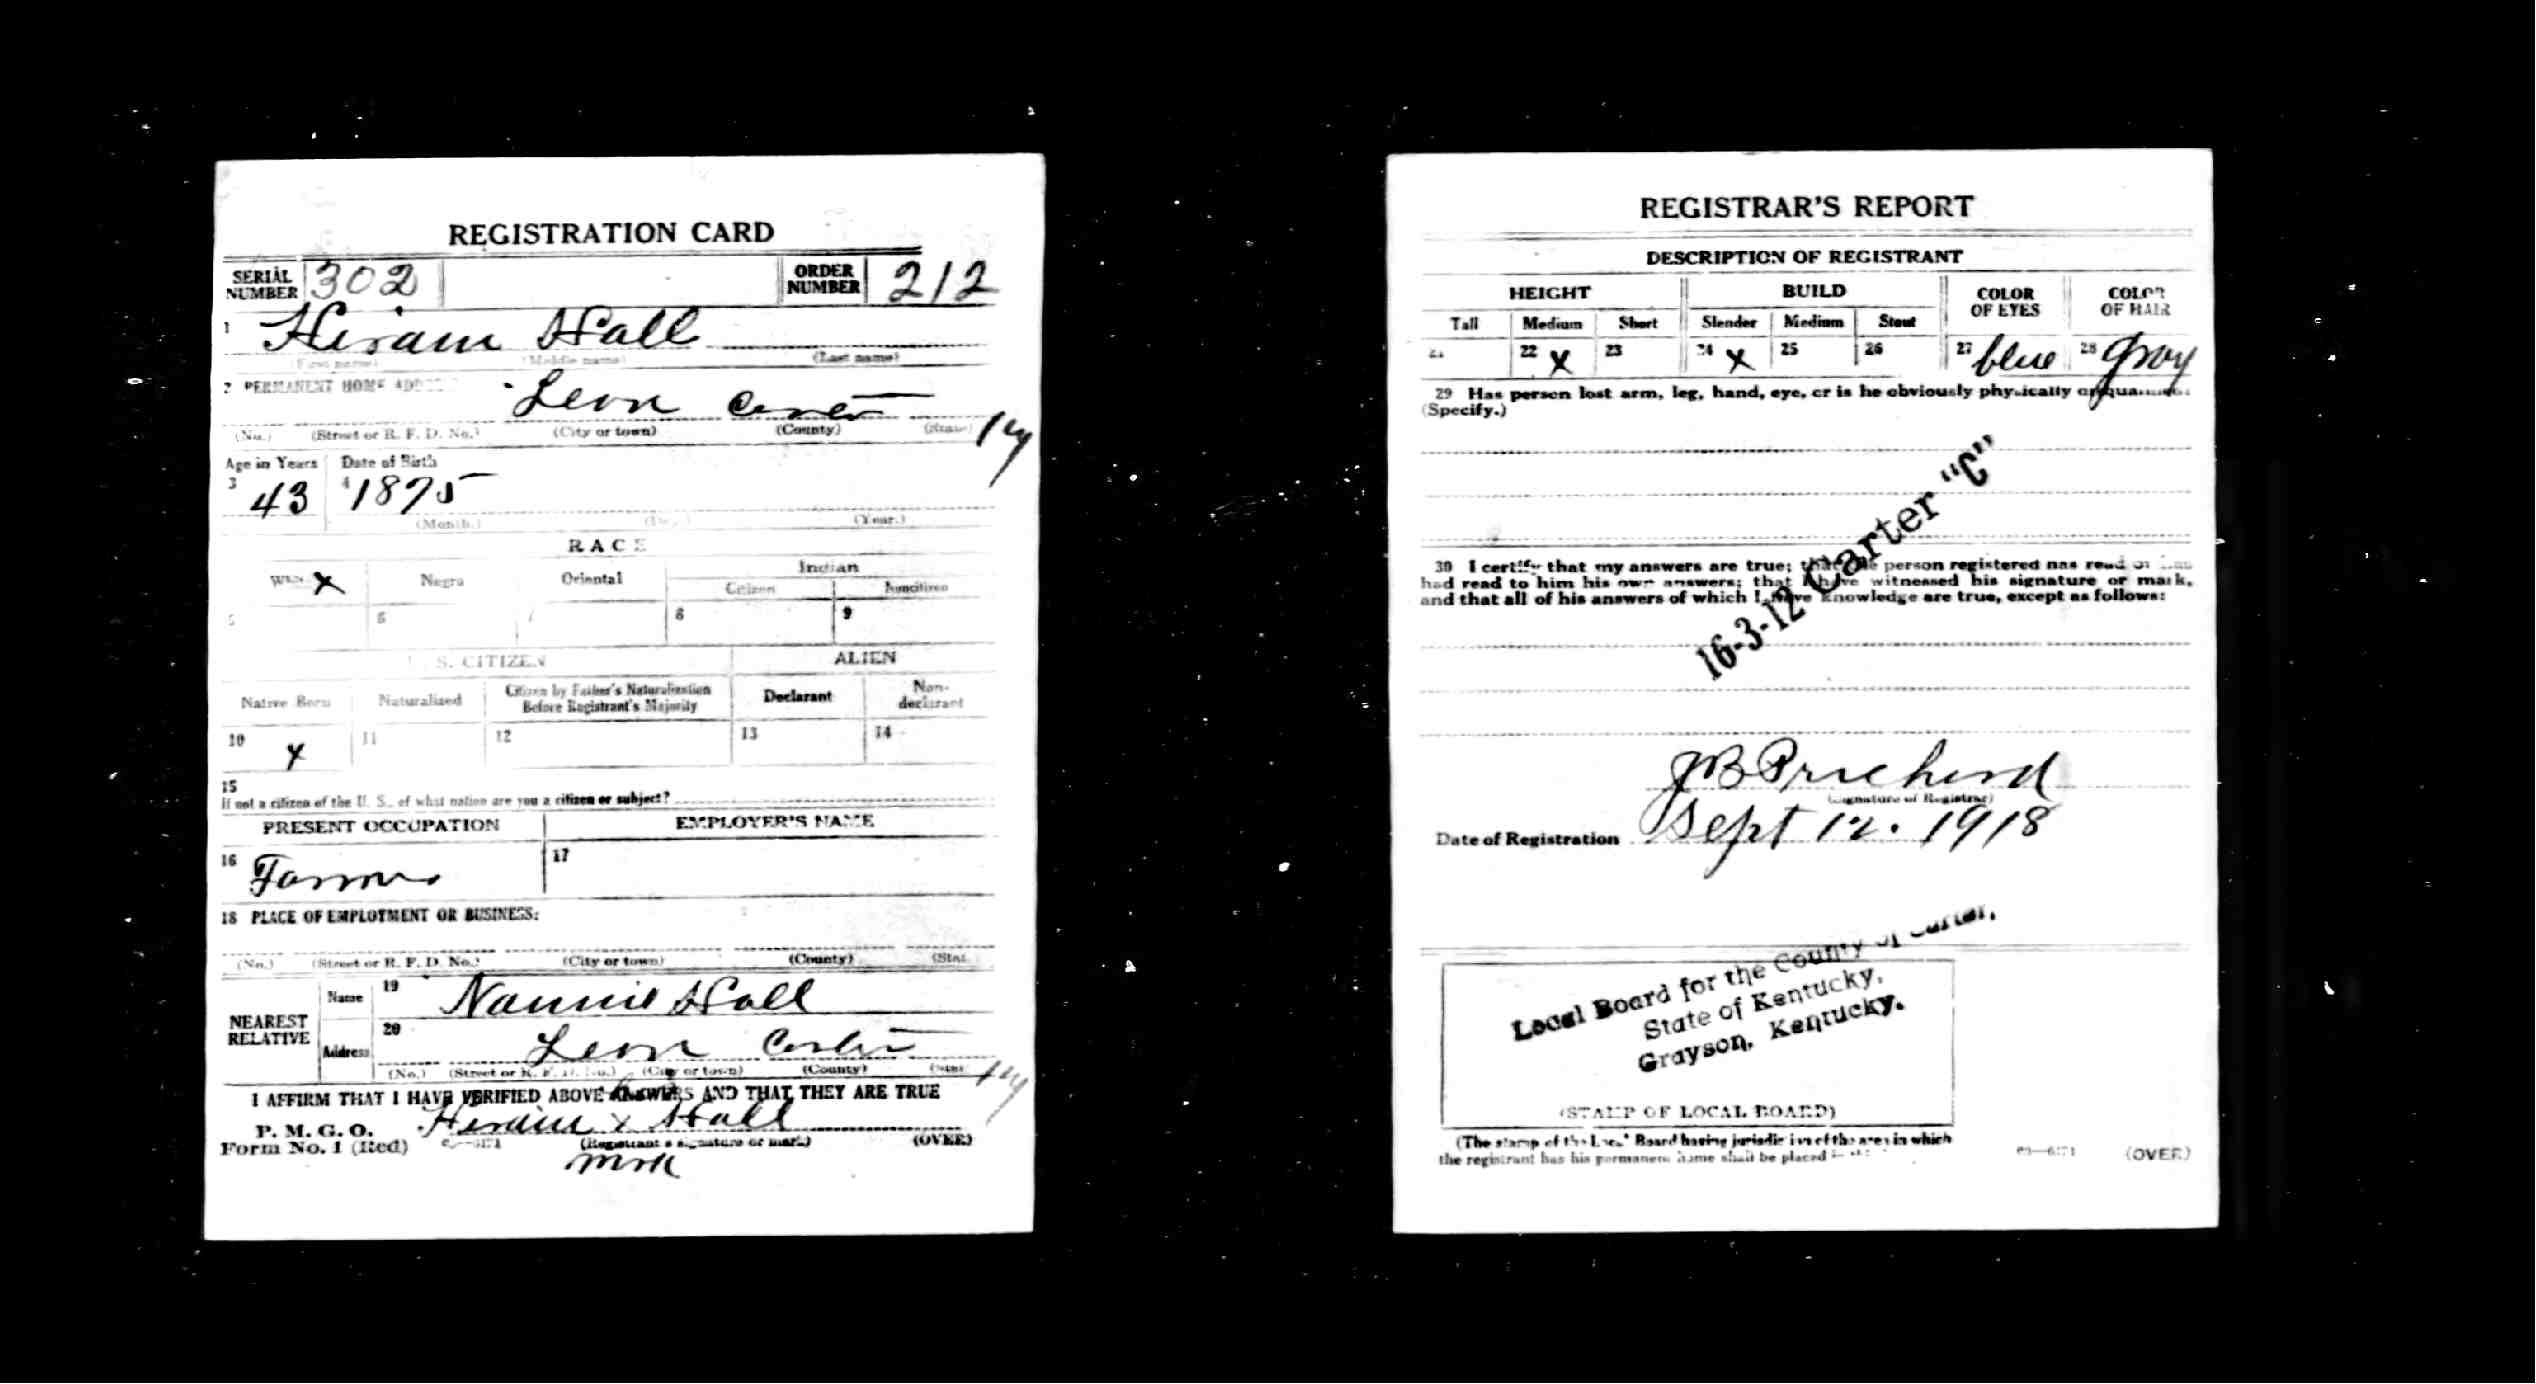 REGISTRATION CARD
SERIAL NUMBER 302 ORDER NUMBER 212
1 Hiram Hall
(First name) (Middle name) (Last name)
2 PERMANENT HOME ADDRESS
Leon Carter Ky
(No.) (Street or R. F. D. No.) (City or town) (County) (State)
Age in Years Date of Birth
3 43 4 1875
(Month.) (Day.) (Year.)
RACE
White X Negro Oriental Indian
Citizen Noncitizen
5 6 7 8 9
U. S. CITIZEN ALIEN
Native Born Naturalized Citizen by Father's Naturalization Before Registrant's Majority Declarant Non-declarant
10 X 11 12 13 14
15
If not a citizen of the U. S., of what nation are you a citizen or subject?
PRESENT OCCUPATION EMPLOYER'S NAME
16 Farmer 17
18 PLACE OF EMPLOYMENT OR BUSINESS:
(No.) (Street or R. F. D. No.) (City or town) (County) (State)
NEAREST RELATIVE Name 19 Nannie Hall
Address 20 Leon Carter Ky
(No.) (Street or R. F. D. No.) (City or town) (County) (State)
I AFFIRM THAT I HAVE VERIFIED ABOVE ANSWERS AND THAT THEY ARE TRUE
his
P. M. G. O. Hiram x Hall
Form No. 1 (Red) (Registrant's signature or mark) (OVER)
mark
REGISTRAR'S REPORT
DESCRIPTION OF REGISTRANT
HEIGHT BUILD COLOR OF EYES COLOR OF HAIR
Tall Medium Short Slender Medium Stout
21 22 X 23 24 X 25 26 27 blue 28 Gray
29 Has person lost arm, leg, hand, eye, or is he obviously physically
(Specify.)
16-3-12 Carter "C"
30 I certify that my answers are true; that the person registered has read or has
had read to him his own answers; that I have witnessed his signature or mark,
and that all of his answers of which I have knowledge are true, except as follows:
J B Prichard
(Signature of Registrar)
Date of Registration Sept 12. 1918
Local Board for the County of Carter,
State of Kentucky,
Grayson, Kentucky.
(STAMP OF LOCAL BOARD)
(The stamp of the Local Board having jurisdiction of the area in which
the registrant has his permanent home shall be placed in
(OVER)